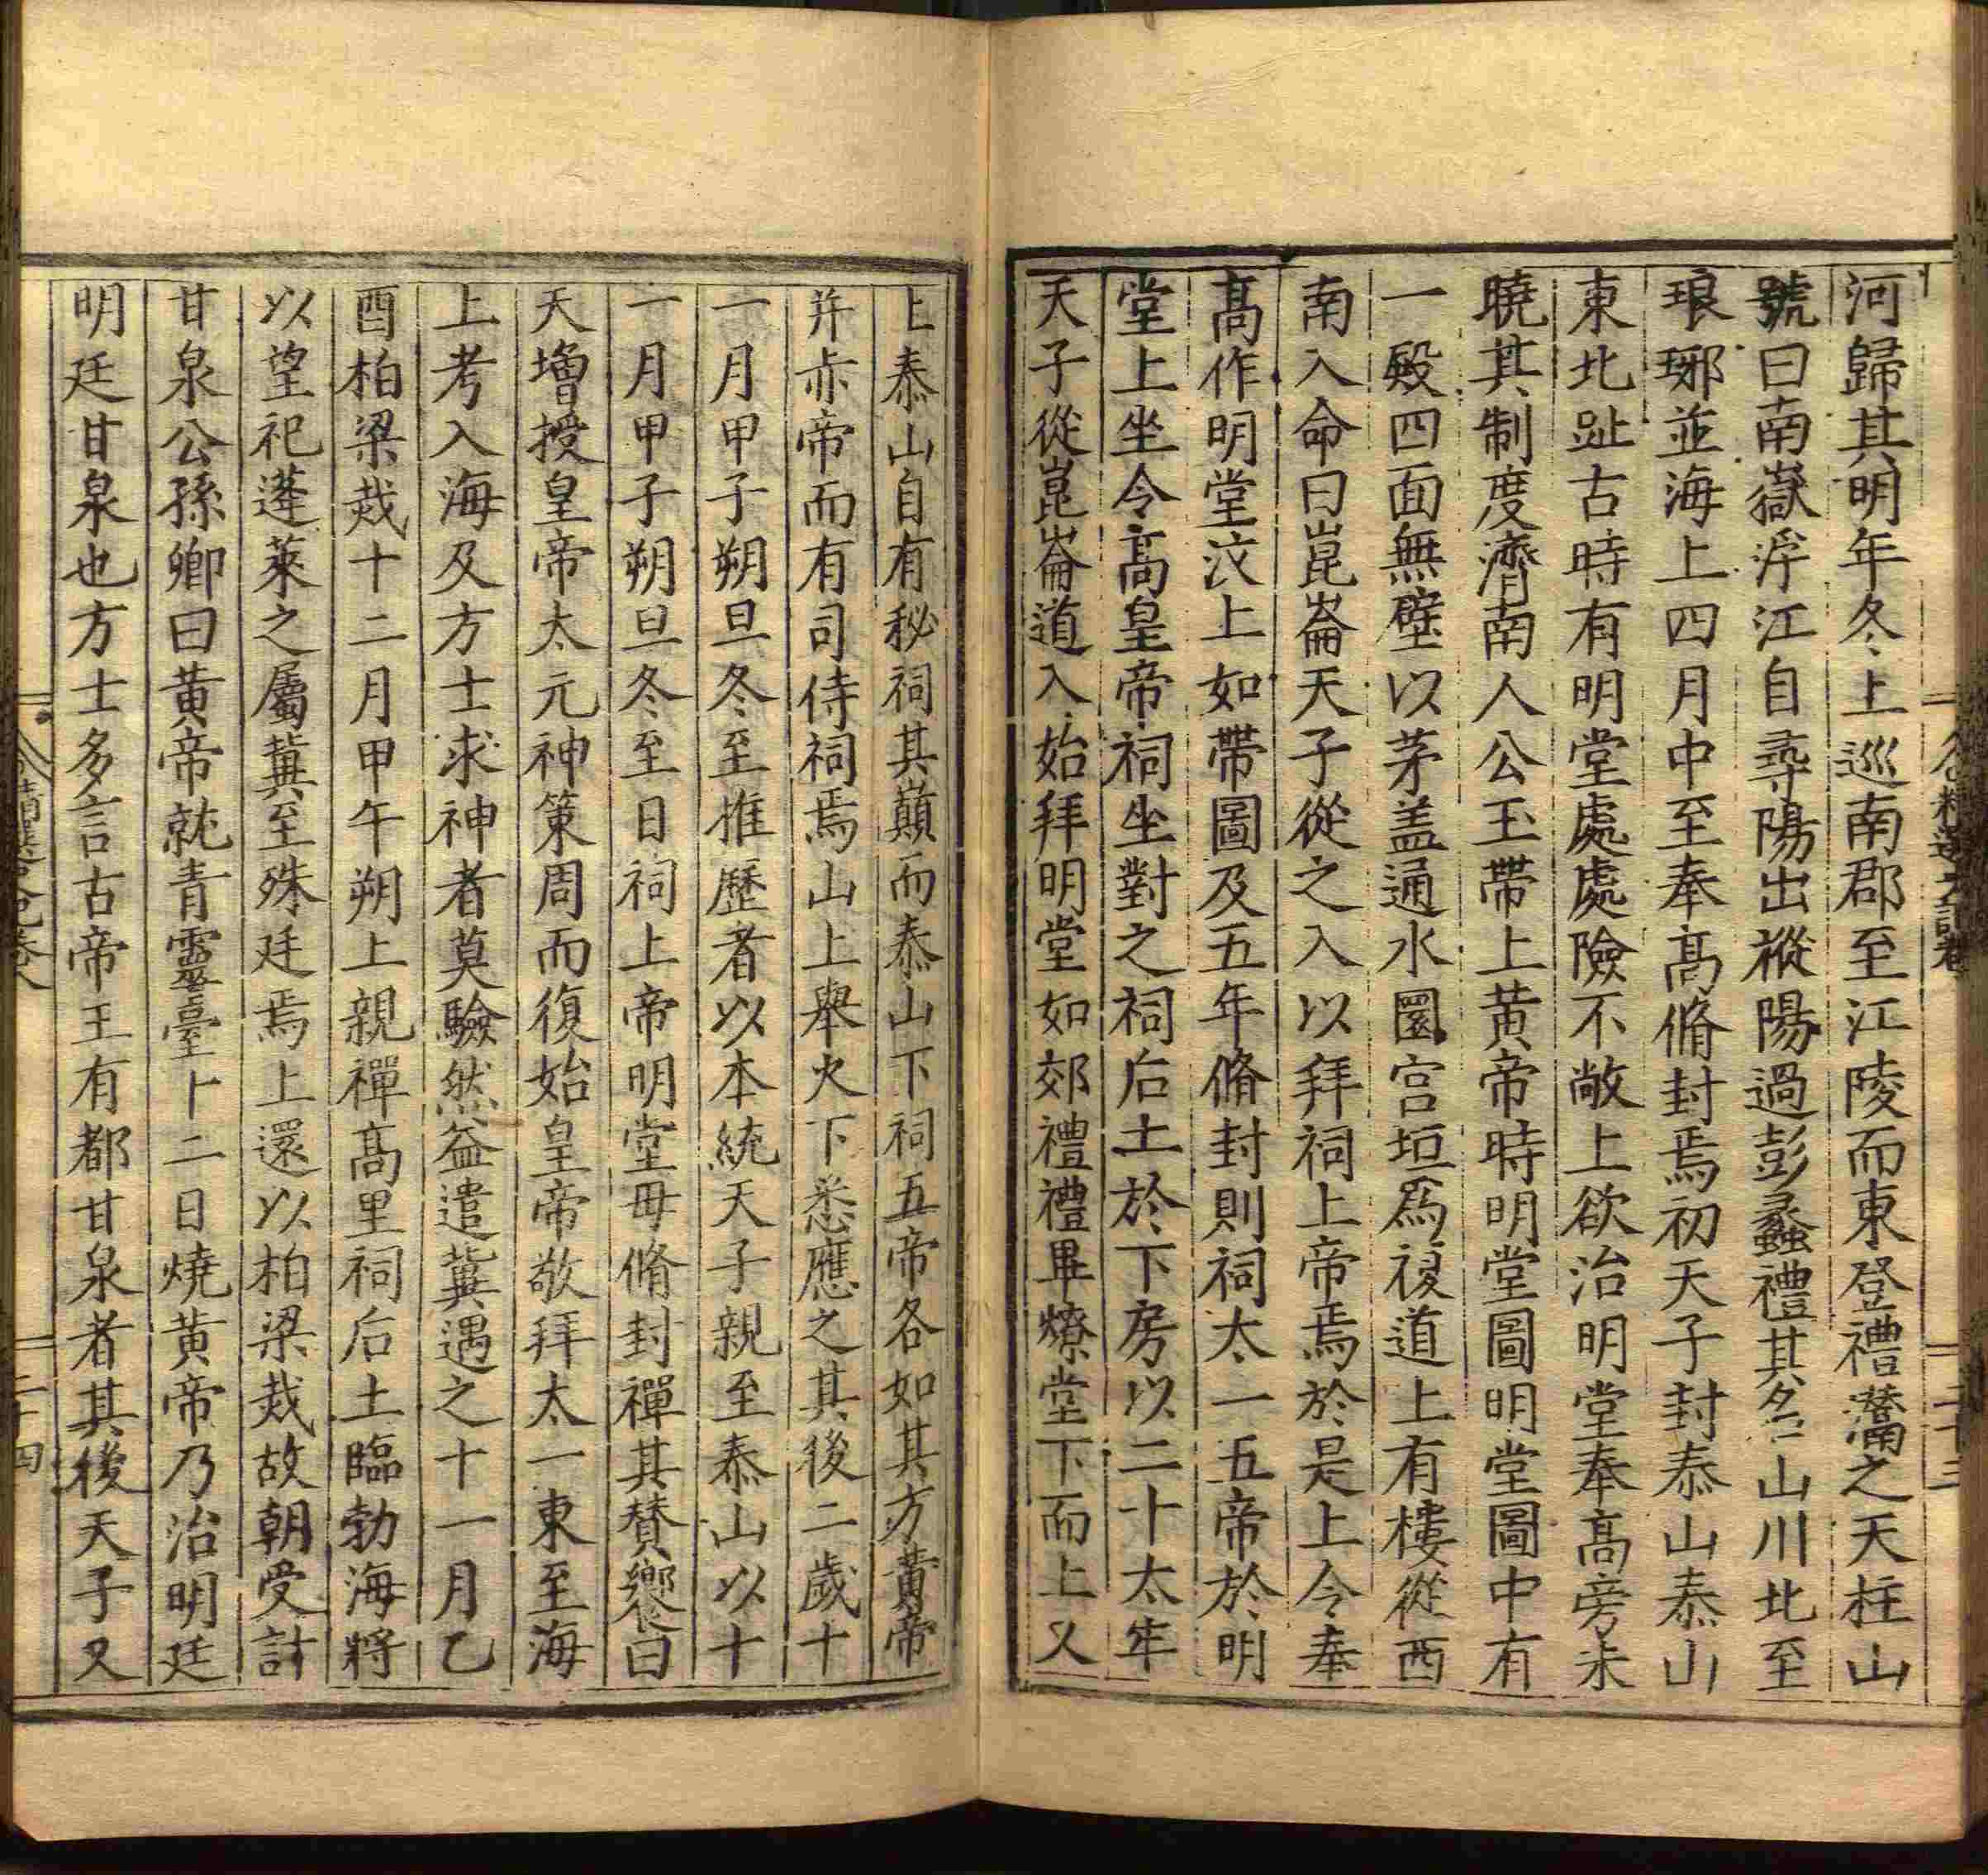 河歸其明年冬上巡南郡至江陵而東登禮灊之天柱山
號曰南嶽浮江自尋陽出樅陽過彭蠡禮其名山川北至
琅琊並海上四月中至奉高脩封焉初天子封泰山泰山
東北趾古時有明堂處處險不敞上欲治明堂奉高旁未
曉其制度濟南人公玉帶上黃帝時明堂圖明堂圖中有
一殿四面無壁以茅盖通水圜宮垣爲複道上有樓從西
南入命曰崑崙天子從之入以拜祠上帝焉於是上令奉
高作明堂汶上如帶圖及五年脩封則祠太一五帝於明
堂上坐令高皇帝祠坐對之祠后土於下房以二十太牢
天子從崑崙道入始拜明堂如郊禮禮畢燎堂下而上又
上泰山自有秘祠其巔而泰山下祠五帝各如其方黃帝
并赤帝而有司侍祠焉山上舉火下悉應之其後二歲十
一月甲子朔旦冬至推歷者以本統天子親至泰山以十
一月甲子朔旦冬至日祠上帝明堂毋脩封禪其贊饗曰
天增授皇帝太元神策周而復始皇帝敬拜太一東至海
上考入海及方士求神者莫驗然益遣冀遇之十一月乙
酉柏梁烖十二月甲午朔上親禪高里祠后土臨勃海將
以望祀蓬萊之屬冀至殊廷焉上還以柏梁烖故朝受計
甘泉公孫卿曰黃帝就青靈臺十二日燒黃帝乃治明廷
明廷甘泉也方士多言古帝王有都甘泉者其後天子又
二十三
二十四